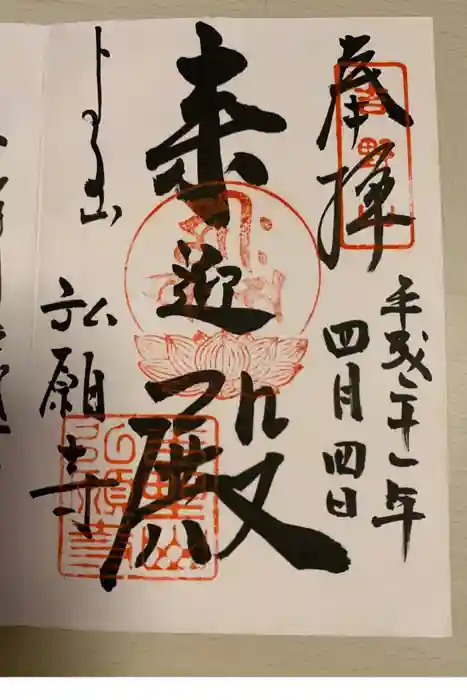 奉拝
平成二十一年
四月四日
来迎殿
弘願寺
吉野山